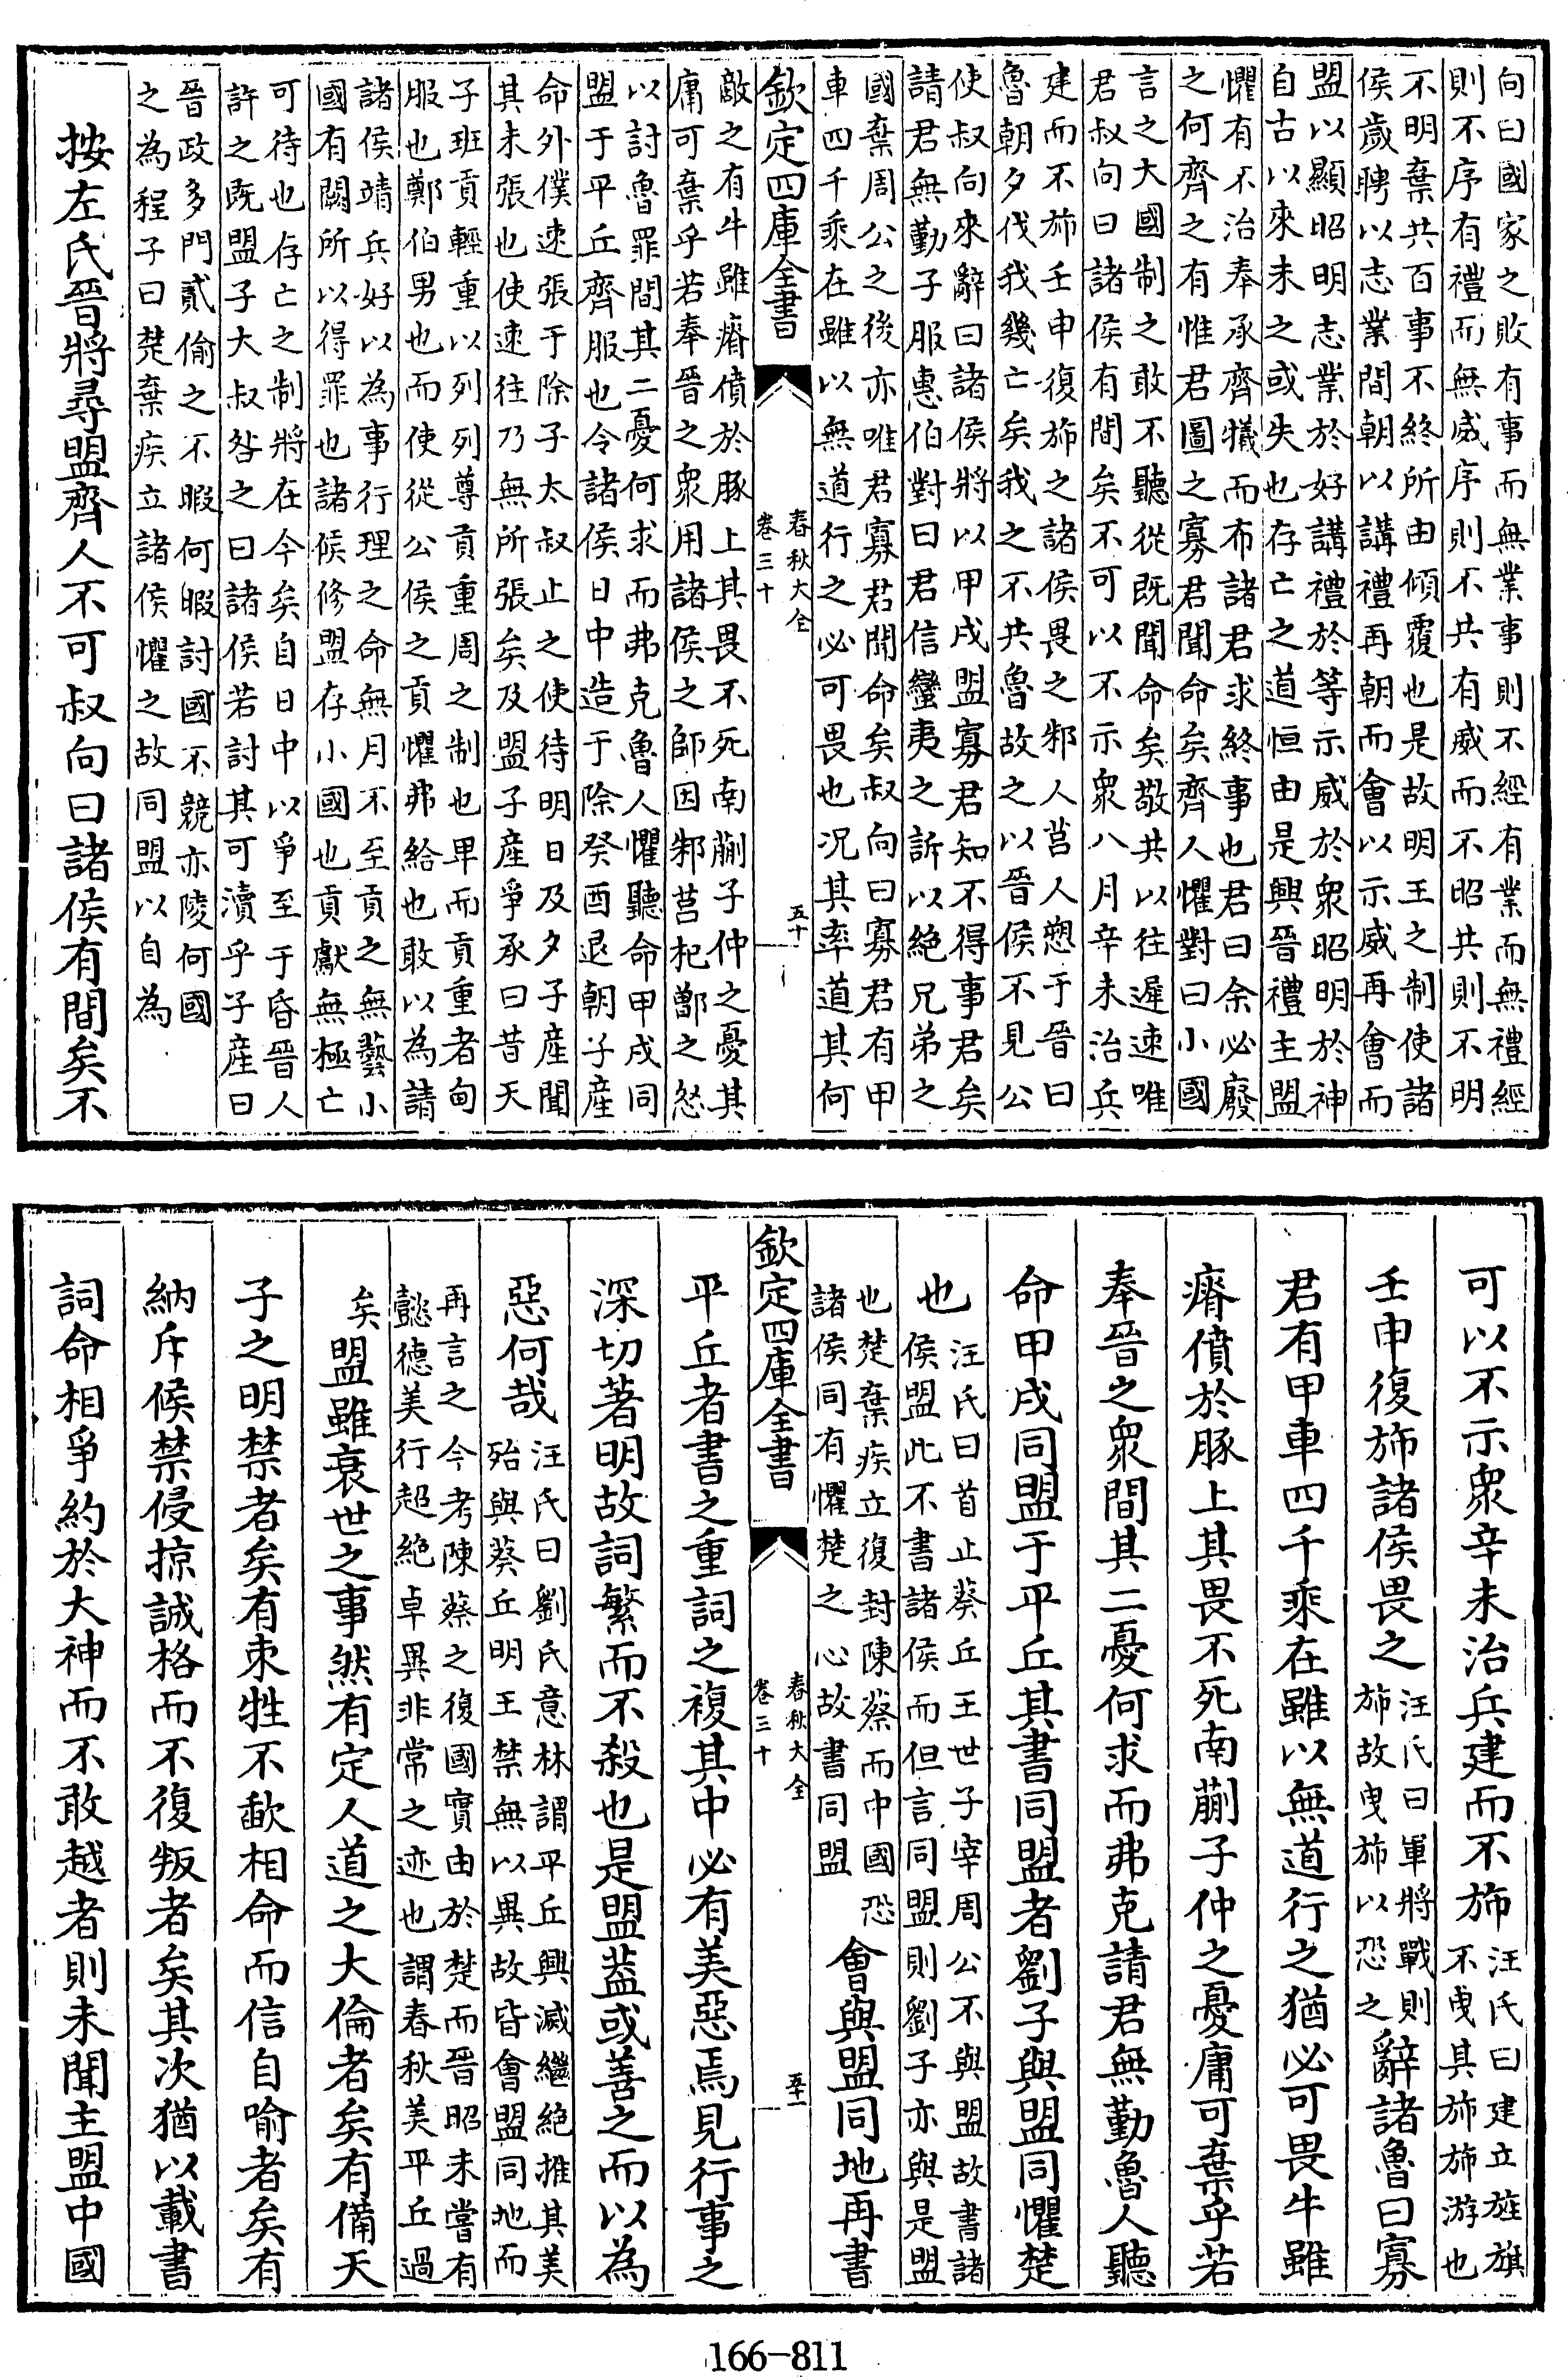 向曰國家之敗有事而無業事則不經有業而無禮經
則不序有禮而無威序則不共有威而不昭共則不明
不明棄共百事不終所由傾覆也是故明王之制使諸
侯歲聘以志業間朝以講禮再朝而會以示威再會而
盟以顯昭明志業於好講禮於等示威於衆昭明於神
自古以來未之或失也存亡之道恒由是興晉禮主盟
懼有不治奉承齊犧而布諸君求終事也君曰余必廢
之何齊之有惟君圖之寡君聞命矣齊人懼對曰小國
言之大國制之敢不聽從既聞命矣敬共以往遲速唯
君叔向曰諸侯有間矣不可以不示衆八月辛未治兵
建而不斾壬申復斾之諸侯畏之邾人莒人愬于晉曰
魯朝夕伐我幾亡矣我之不共魯故之以晉侯不見公
使叔向來辭曰諸侯將以甲戌盟寡君知不得事君矣
請君無勤子服惠伯對曰君信蠻夷之訴以絶兄弟之
國棄周公之後亦唯君寡君聞命矣叔向曰寡君有甲
車四千乘在雖以無道行之必可畏也况其率道其何
欽定四庫全書
春秋大全
卷三十
五十
敵之有牛雖瘠僨於豚上其畏不死南蒯子仲之憂其
庸可棄乎若奉晉之衆用諸侯之師因邾莒杞鄫之怒
以討魯罪間其二憂何求而弗克魯人懼聽命甲戌同
盟于平丘齊服也令諸侯日中造于除癸酉退朝子產
命外僕速張于除子太叔止之使待明日及夕子產聞
其未張也使速往乃無所張矣及盟子產爭承曰昔天
子班貢輕重以列列尊貢重周之制也卑而貢重者甸
服也鄭伯男也而使從公侯之貢懼弗給也敢以為請
諸侯靖兵好以為事行理之命無月不至貢之無藝小
國有闕所以得罪也諸侯修盟存小國也貢獻無極亡
可待也存亡之制將在今矣自日中以爭至于昏晉人
許之既盟子大叔咎之曰諸侯若討其可瀆乎子產曰
晉政多門貳偷之不暇何暇討國不競亦陵何國
之為程子曰楚棄疾立諸侯懼之故同盟以自為
按左氏晉將尋盟齊人不可叔向曰諸侯有間矣不
可以不示衆辛未治兵建而不斾汪氏曰建立旌旗
不曳其斾斾游也
壬申復斾諸侯畏之汪氏曰軍將戰則
斾故曳斾以恐之辭諸魯曰寡
君有甲車四千乘在雖以無道行之猶必可畏牛雖
瘠僨於豚上其畏不死南蒯子仲之憂庸可棄乎若
奉晉之衆間其二憂何求而弗克請君無勤魯人聽
命甲戌同盟于平丘其書同盟者劉子與盟同懼楚
也汪氏曰首止葵丘王世子宰周公不與盟故書諸
侯盟此不書諸侯而但言同盟則劉子亦與是盟
也楚棄疾立復封陳蔡而中國恐
諸侯同有懼楚之心故書同盟會與盟同地再書
欽定四庫全書
春秋大全
卷三十
五十一
平丘者書之重詞之複其中必有美惡焉見行事之
深切著明故詞繁而不殺也是盟葢或善之而以為
惡何哉汪氏曰劉氏意林謂平丘興滅繼絶推其美
殆與葵丘明王禁無以異故皆會盟同地而
再言之今考陳蔡之復國實由於楚而晉昭未嘗有
懿德美行超絶卓異非常之迹也謂春秋美平丘過
矣盟雖衰世之事然有定人道之大倫者矣有備天
子之明禁者矣有束牲不歃相命而信自喻者矣有
納斥候禁侵掠誠格而不復叛者矣其次猶以載書
詞命相爭約於大神而不敢越者則未聞主盟中國
166-811